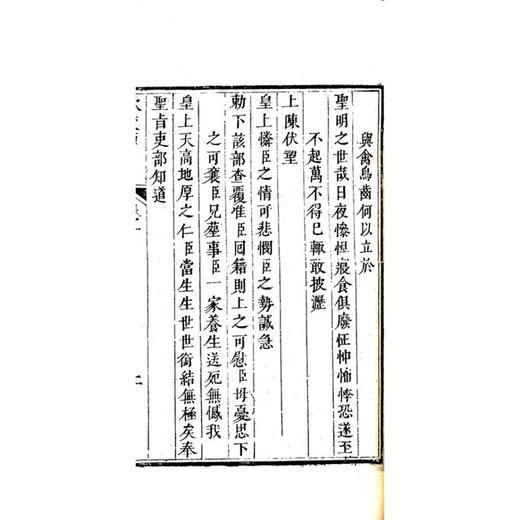 與禽鳥齒何以立於
聖明之世哉日夜慘怛寢食俱廢怔忡怖悸恐遂至
不起萬不得已輒敢披瀝
上陳伏望
皇上憐臣之情可悲憫臣之勢誠急
勅下該部查覆准臣回籍則上之可慰臣母憂思下
之可襄臣兄塟事臣一家養生送死無憾我
皇上天高地厚之仁臣當生生世世銜結無極矣奉
聖旨吏部知道